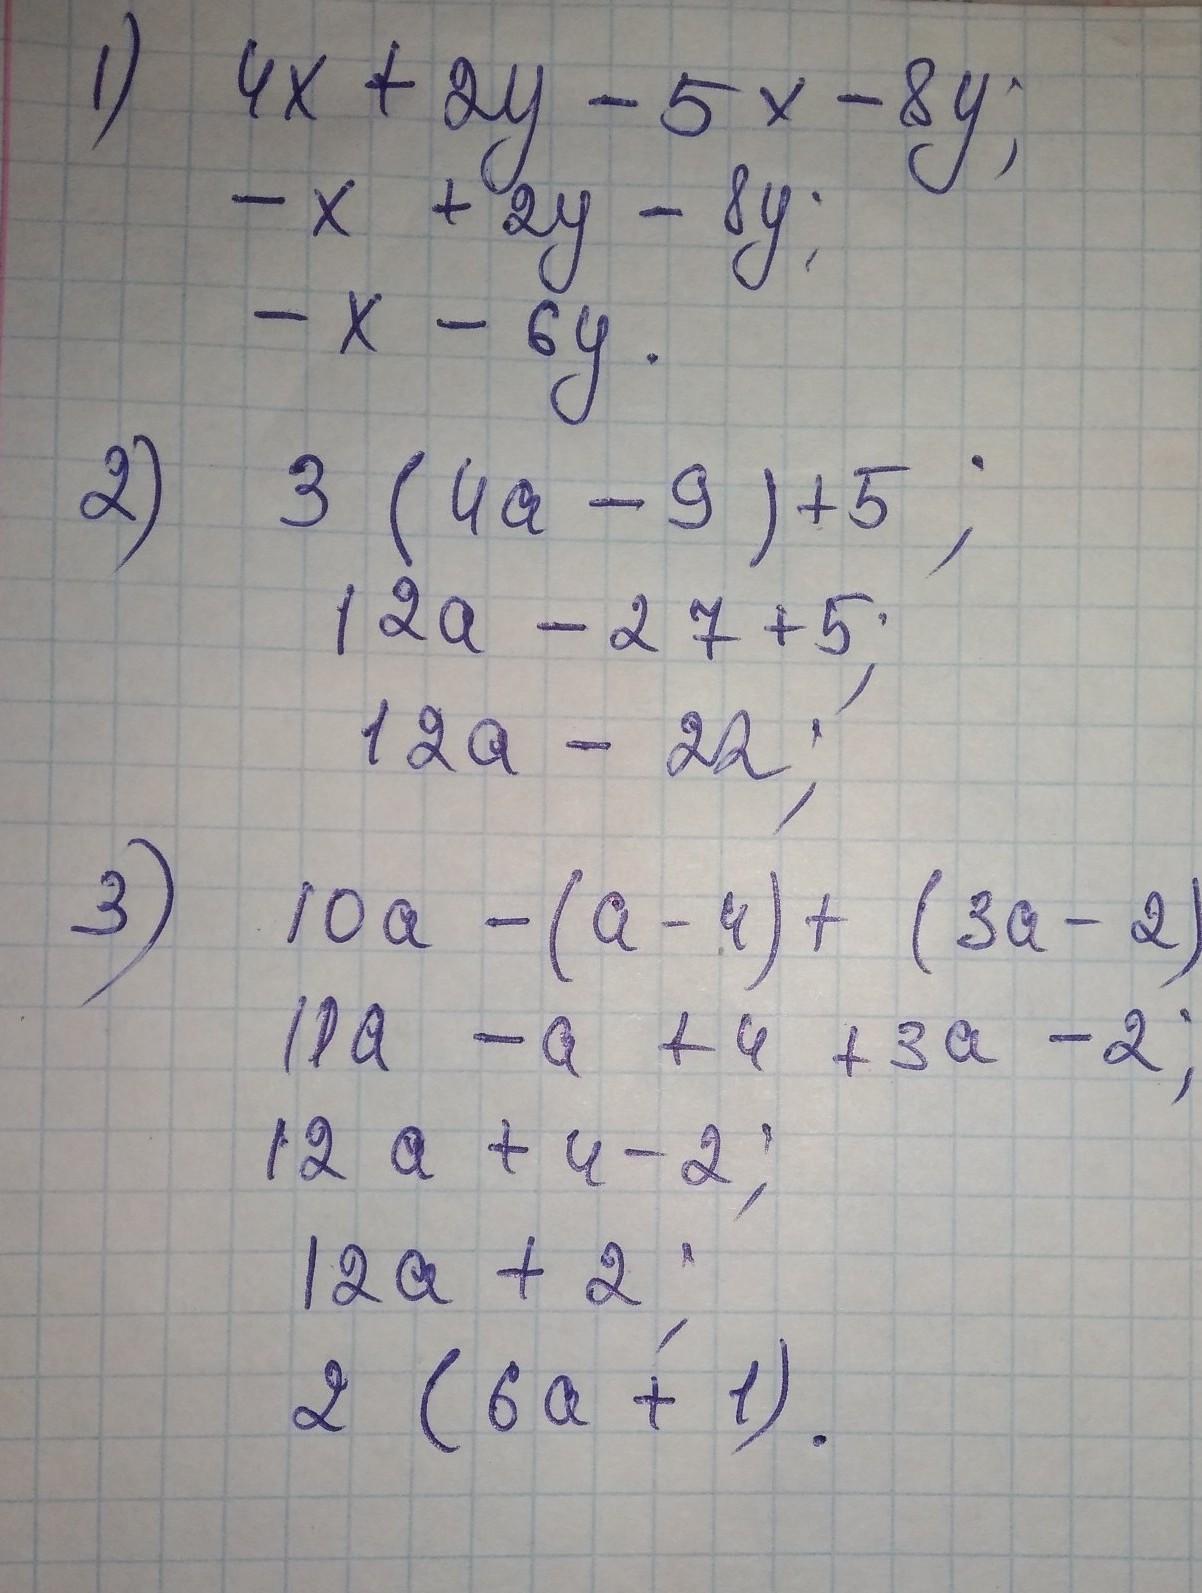 1) 4x + 2y - 5x - 8y;
- x + 2y - 8y;
- x - 6y.
2) 3 (4a - 9) + 5;
12a - 27 + 5;
12a - 22;
3) 10a - (a - 4) + (3a - 2)
10a - a + 4 + 3a - 2;
12a + 4 - 2;
12a + 2;
2 (6a + 1).